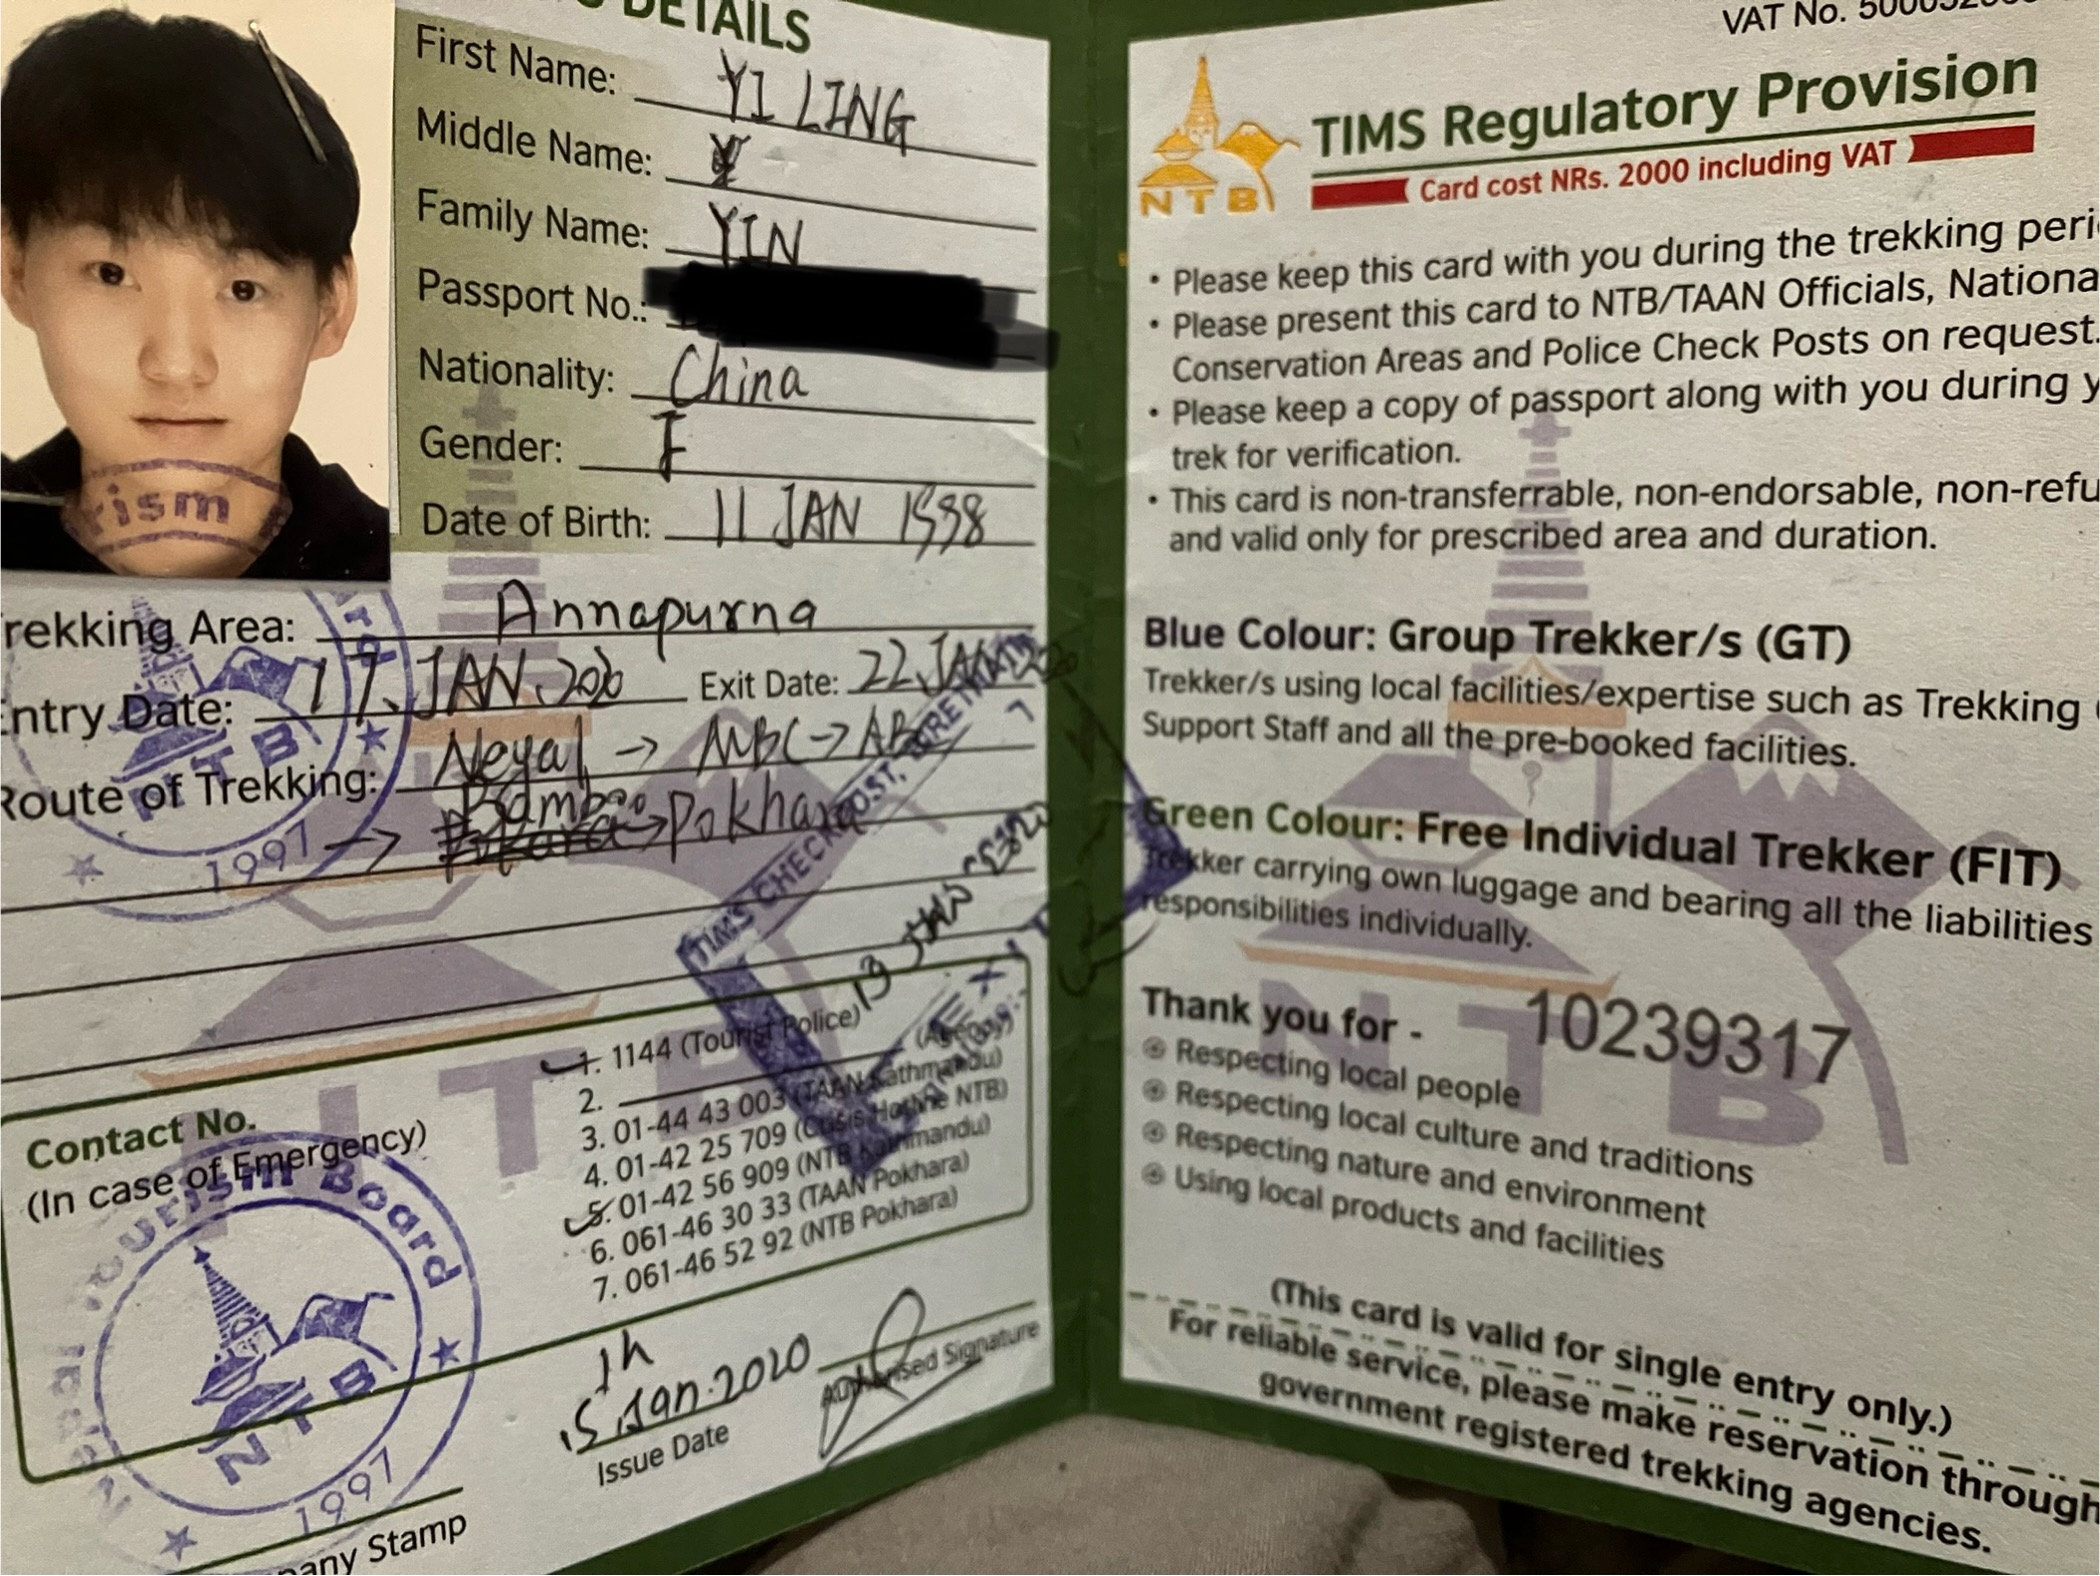 DETAILS
First Name: YI LING
Middle Name:
Family Name: YIN
Passport No.:
Nationality: China
Gender: F
Date of Birth: 11 JAN 1998
rekking Area: Annapurna
Entry Date: 17. JAN. 2020 Exit Date: 22 JAN
Route of Trekking: Neyal → MBC → ABC
→ Bamboo → Pokhara
TIMS CHECK POST, BIRETHANTI
1997
Contact No.
(In case of Emergency)
1. 1144 (Tourist Police)
2. (Agency)
3. 01-44 43 003 (TAAN Kathmandu)
4. 01-42 25 709 (Crisis Hotline NTB)
5. 01-42 56 909 (NTB Kathmandu)
6. 061-46 30 33 (TAAN Pokhara)
7. 061-46 52 92 (NTB Pokhara)
Nepal Tourism Board
NTB
1997
15th Jan. 2020
Issue Date
Authorised Signature
pany Stamp
rism
VAT No.
NTB
TIMS Regulatory Provision
Card cost NRs. 2000 including VAT
• Please keep this card with you during the trekking peri
• Please present this card to NTB/TAAN Officials, Nationa
Conservation Areas and Police Check Posts on request.
• Please keep a copy of passport along with you during y
trek for verification.
• This card is non-transferrable, non-endorsable, non-refu
and valid only for prescribed area and duration.
Blue Colour: Group Trekker/s (GT)
Trekker/s using local facilities/expertise such as Trekking
Support Staff and all the pre-booked facilities.
Green Colour: Free Individual Trekker (FIT)
Trekker carrying own luggage and bearing all the liabilities
responsibilities individually.
Thank you for - 10239317
Respecting local people
Respecting local culture and traditions
Respecting nature and environment
Using local products and facilities
(This card is valid for single entry only.)
For reliable service, please make reservation through
government registered trekking agencies.